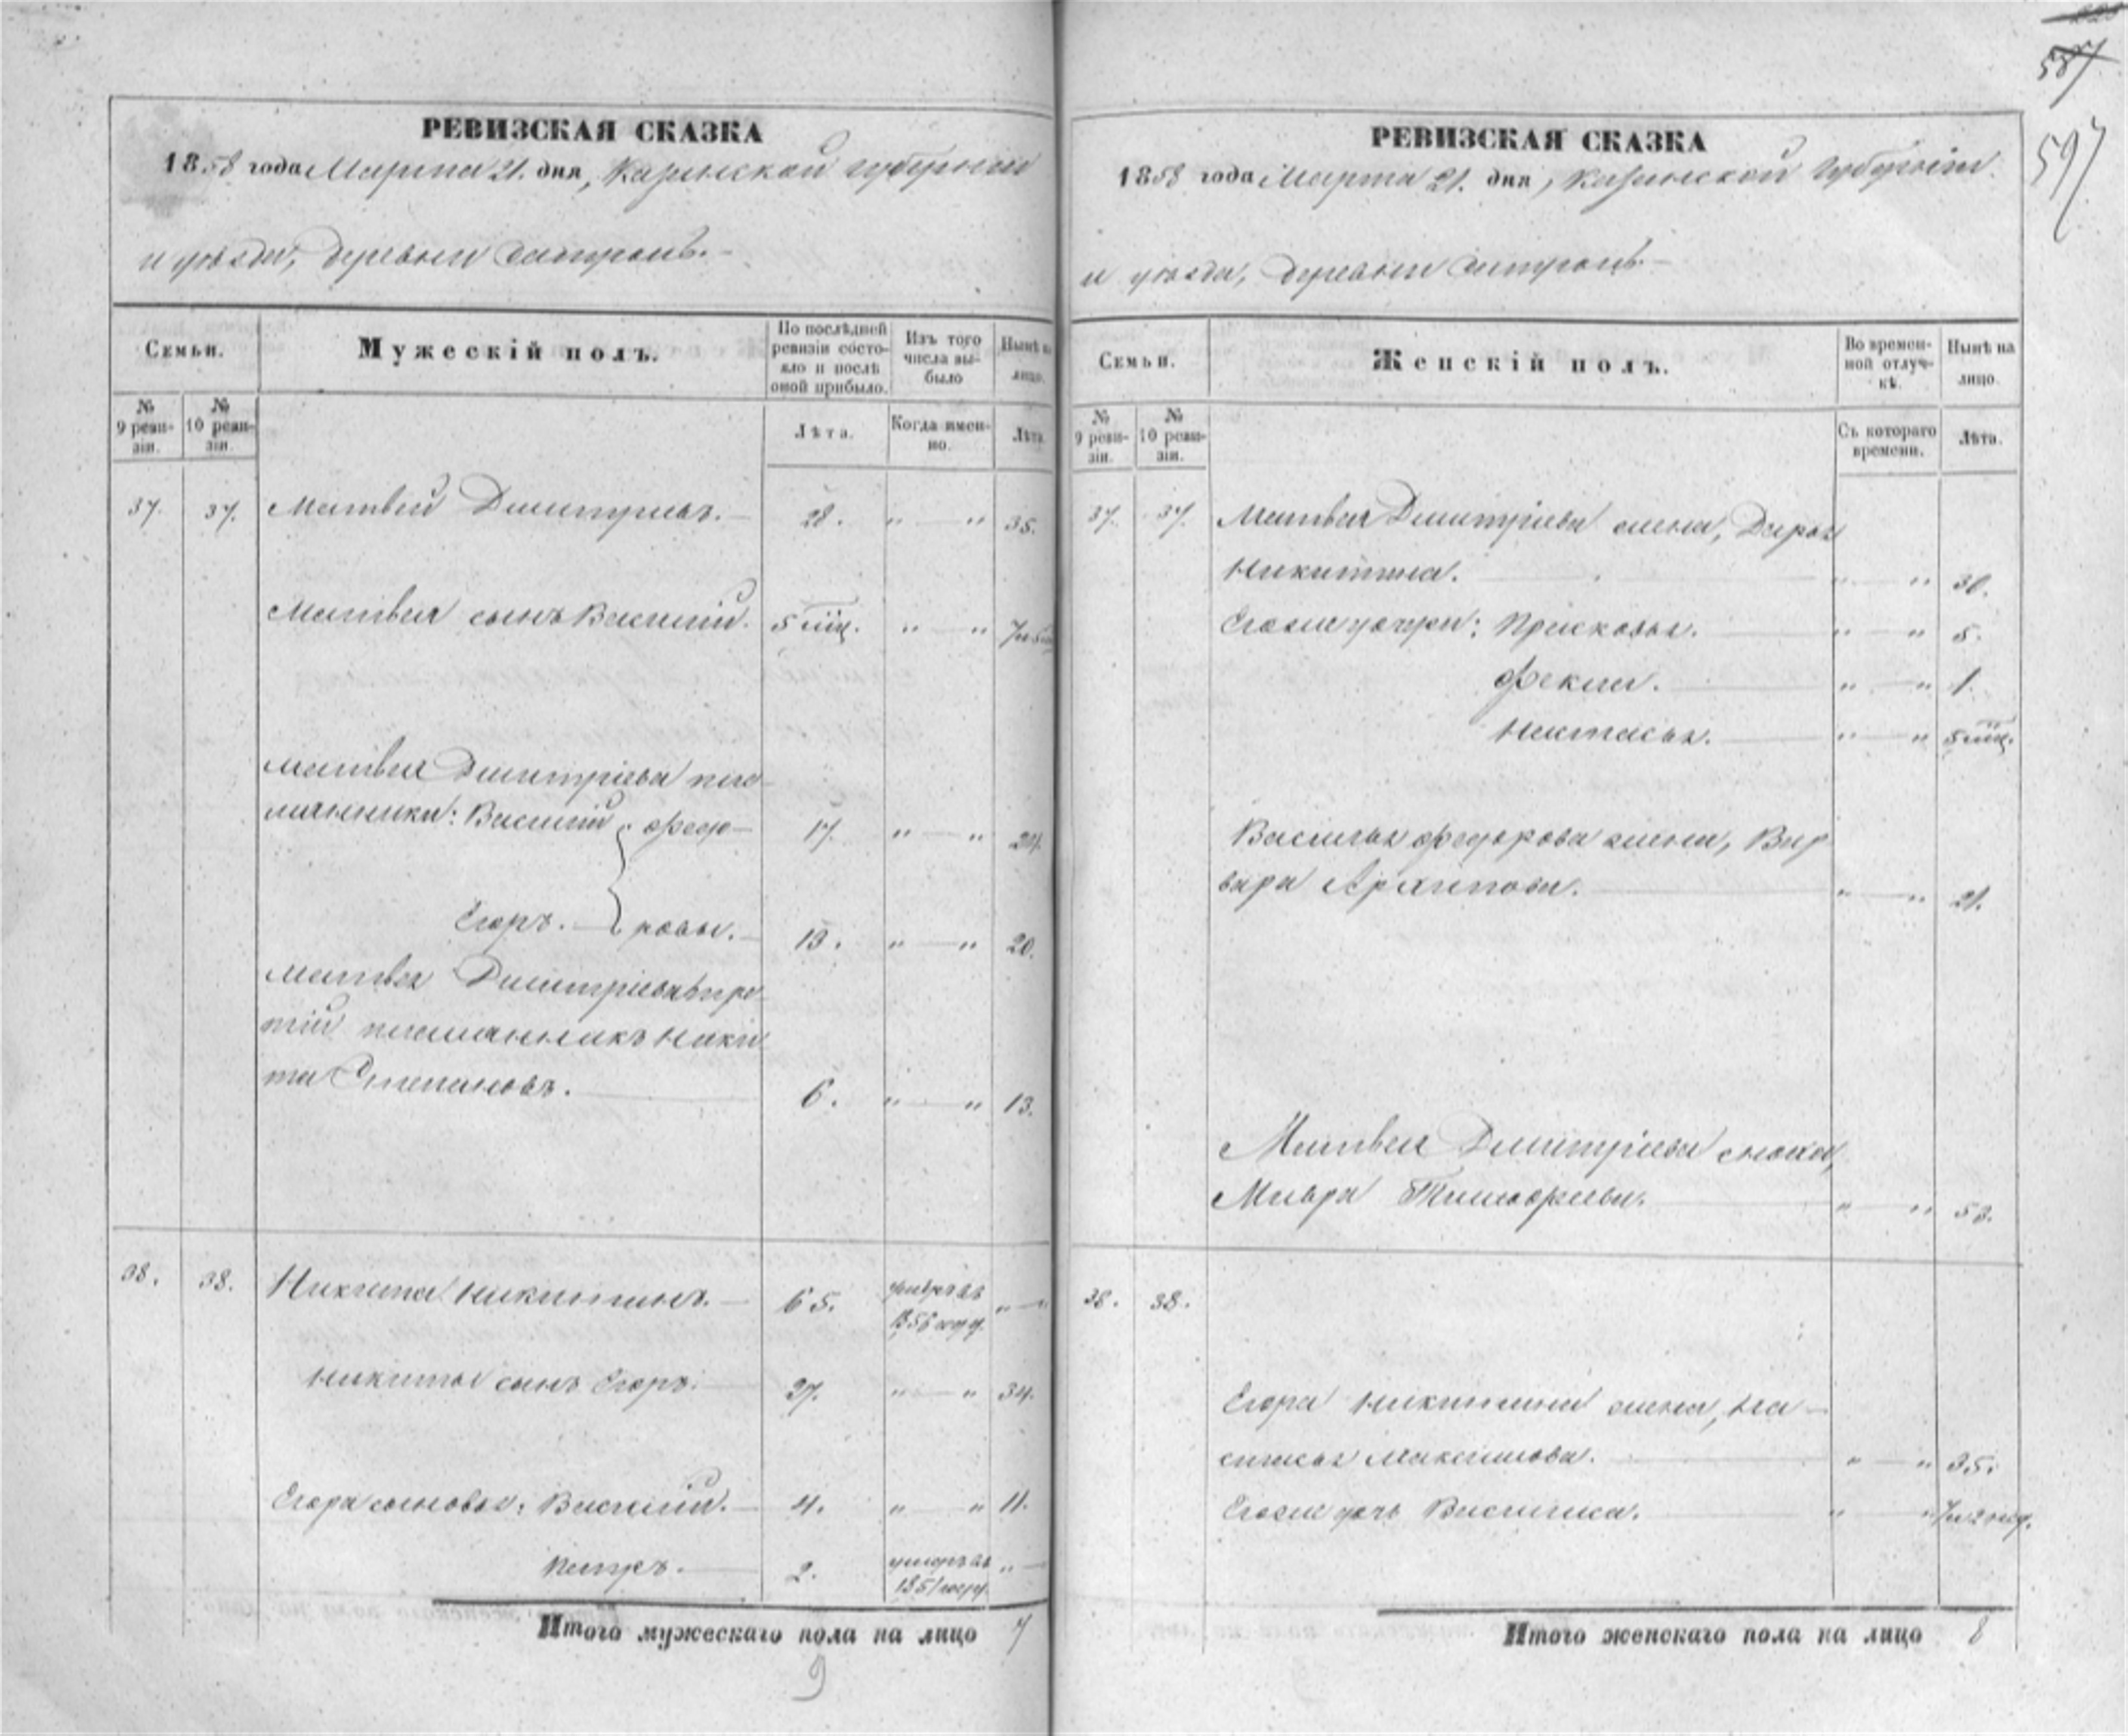 587
597
РЕВИЗСКАЯ СКАЗКА
1858 года Марта 21. дня, Казанской губернии
и уѣзда, деревни
Семьи.
Мужескій полъ.
По послѣдней ревизіи состояло и послѣ оной прибыло.
Изъ того числа выбыло
Нынѣ на лицо.
№ 9 ревизіи.
№ 10 ревизіи.
Лѣта.
Когда именно.
Лѣта.
37. 37. Матвей Дмитриевъ. — 28. " — " 35.
Матвея сынъ Василій. 5 мѣц. " — " 7 и 5 мѣц
Матвея Дмитріева пле-
мянники: Василій Федо- 17. " — " 24.
Егоръ. — ровы. — 13. " — " 20.
Матвея Дмитріева тре-
тій племянникъ Ники
та Степановъ. 6. " — " 13.
38. 38. Никита Никитинъ. — 65. умеръ въ 1856 году. " — "
Никиты сынъ Егоръ. 27. " — " 34.
Егора сыновья: Василій. — 4. " — " 11.
Петръ. — 2. умеръ въ 1851 году. " —
Итого мужескаго пола на лицо 7
9
РЕВИЗСКАЯ СКАЗКА
1858 года Марта 21. дня, Казанской Губерніи
и уѣзда, деревни
Семьи.
Женскій полъ.
Во временной отлучкѣ.
Нынѣ на лицо.
№ 9 ревизіи.
№ 10 ревизіи.
Съ котораго времени.
Лѣта.
37. 37. Матвея Дмитріева жена, Дарья
Никитина. " — " 30.
Егоже дочери: Прасковья. " — " 5.
Фекла. " — " 1.
Настасья. " — " 5 мѣц.
Василья Федорова жена, Вар
вара Архипова. " — " 21.
Матвея Дмитріева сноха,
Мавра Тимофеева. " — " 53.
38. 38.
Егора Никитина жена, На-
стасья Максимова. " — " 35.
Егоже дочь Василиса. " — "
Итого женскаго пола на лицо 8